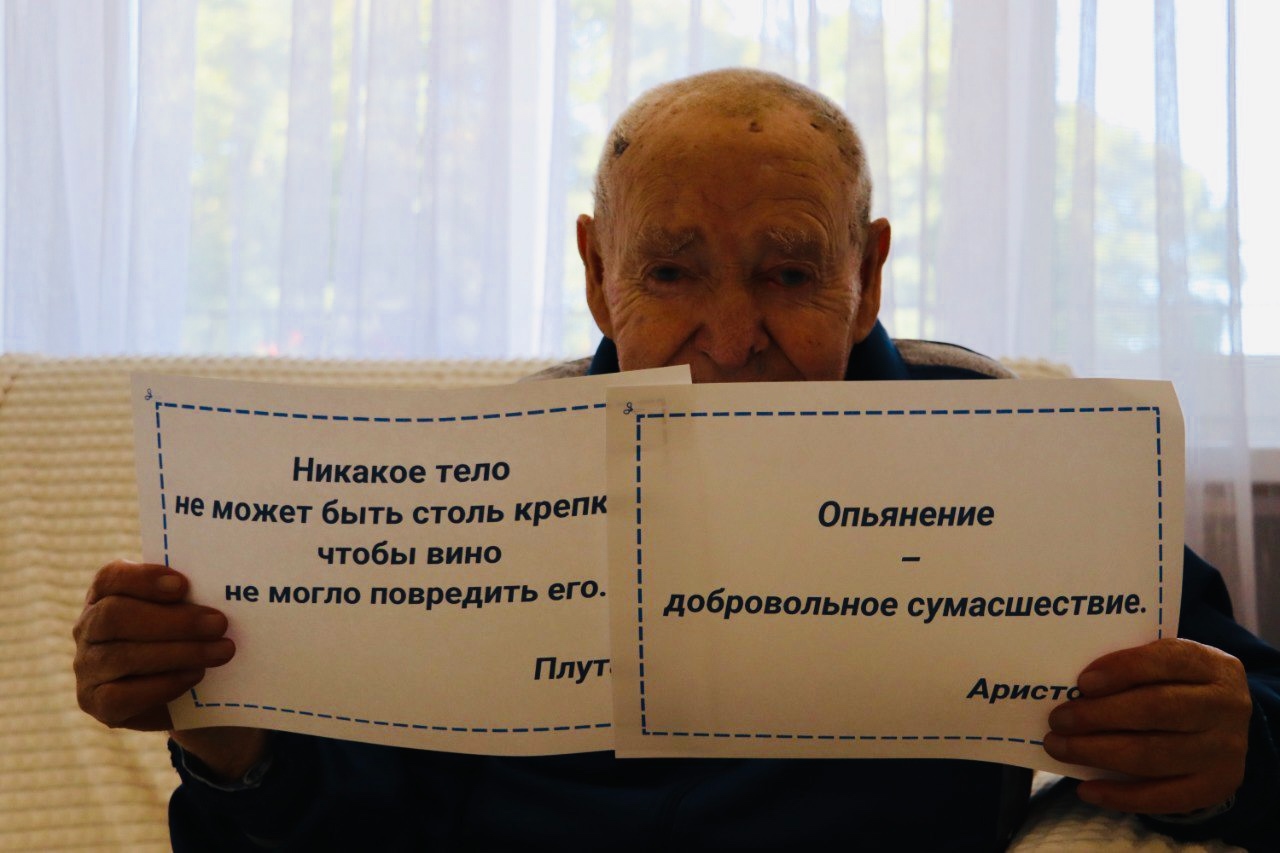 Никакое тело
не может быть столь крепк
чтобы вино
не могло повредить его.
Плут
Опьянение
–
добровольное сумасшествие.
Аристо